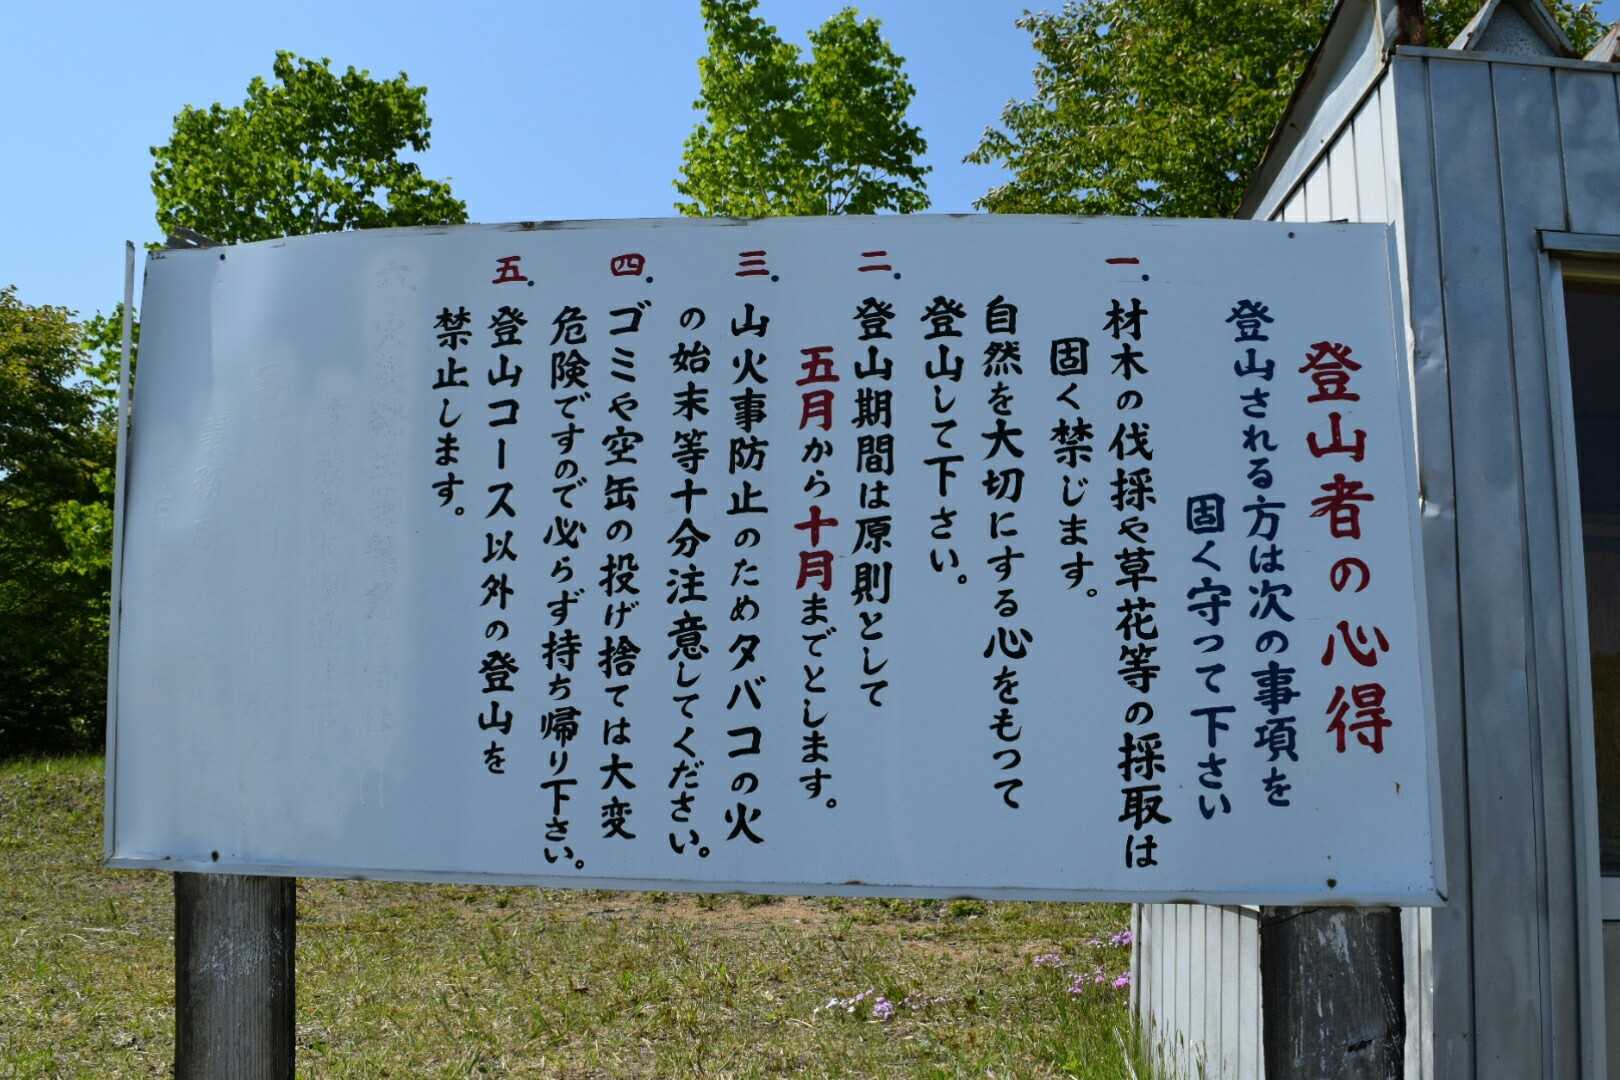 登山者の心得
登山される方は次の事項を
固く守って下さい
一. 材木の伐採や草花等の採取は
固く禁じます。
自然を大切にする心をもって
登山して下さい。
二. 登山期間は原則として
五月から十月までとします。
三. 山火事防止のためタバコの火
の始末等十分注意してください。
四. ゴミや空缶の投げ捨ては大変
危険ですので必らず持ち帰り下さい。
五. 登山コース以外の登山を
禁止します。
六.